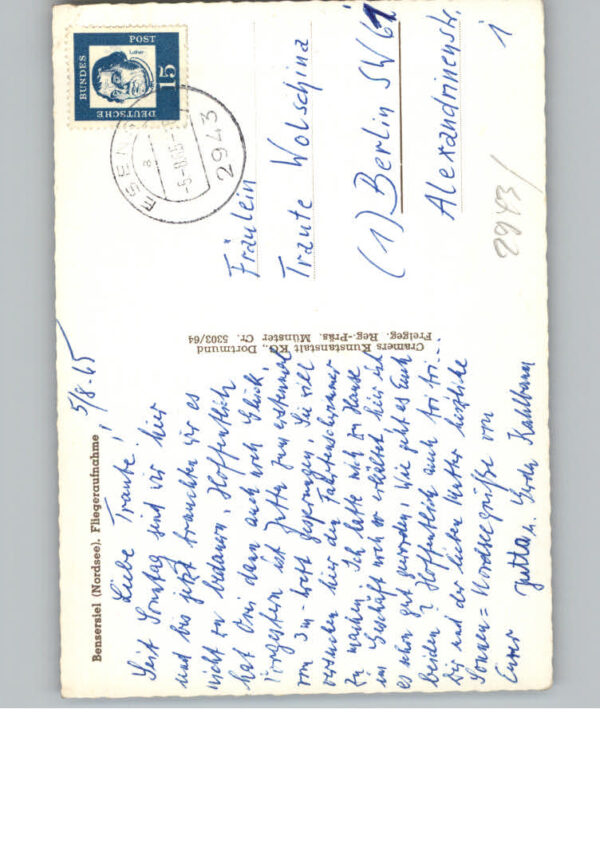 Bensersiel (Nordsee), Fliegeraufnahme
5/8.65
Liebe Traute!
Seit Sonntag sind wir hier
und bis jetzt brauchten wir es
nicht zu bedauern. Hoffentlich
hat Omi dann auch noch Glück.
Vorgestern ist Jutta zum erstenmal
vom 3m-Brett gesprungen. Sie will
versuchen hier den Fahrtenschwimmer
zu machen. Ich hatte mich zu Hause
im Geschäft noch so erkältet, hier ist
es schon gut geworden. Wie geht es Euch
beiden? Hoffentlich auch tri tri...
Dir und der lieben Mutter herzliche
Sonnen= Nordseegrüße von
Eurer Jutta u. Kahlbaum
Cramers Kunstanstalt KG., Dortmund
Freigeg. Reg.-Präs. Münster Cr. 5303/64
DEUTSCHE
BUNDES
POST
Luther
15
2943
Fräulein
Traute Wolschina
(1) Berlin SW 61
Alexandrinenstr.
1
2943/